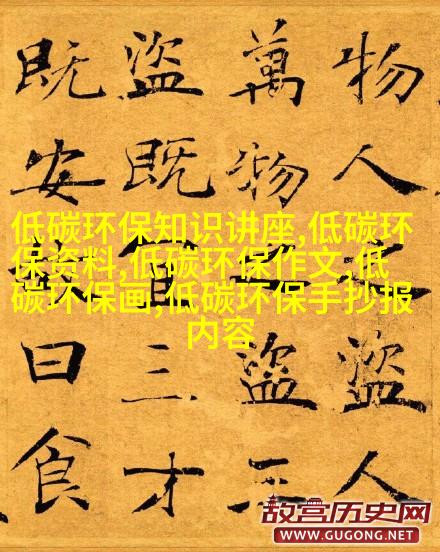 物人之盜人
萬物之盜三
盜既宜三才
既安故曰食
低碳环保知识讲座,低碳环
保资料,低碳环保作文,低
碳环保画,低碳环保手抄报
内容
故宫历史网
WWW.GUGONG.NET